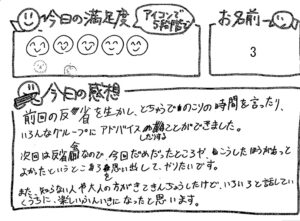 今日の満足度
アイコンで
5段階で
お名前
3
今日の感想
前回の反省を生かし、とちゅうでのこりの時間を言ったり、
いろんなグループにアドバイスしたりすることができました。
次回は反省会なので、今回だめだったところや、こうしたほうが言って
よかったというところを思い出して、やりたいです。
また、知らない人や大人の方がきてきんちょうしたけど、いろいろと話してい
くうちに、楽しいふんいきになったと思います。